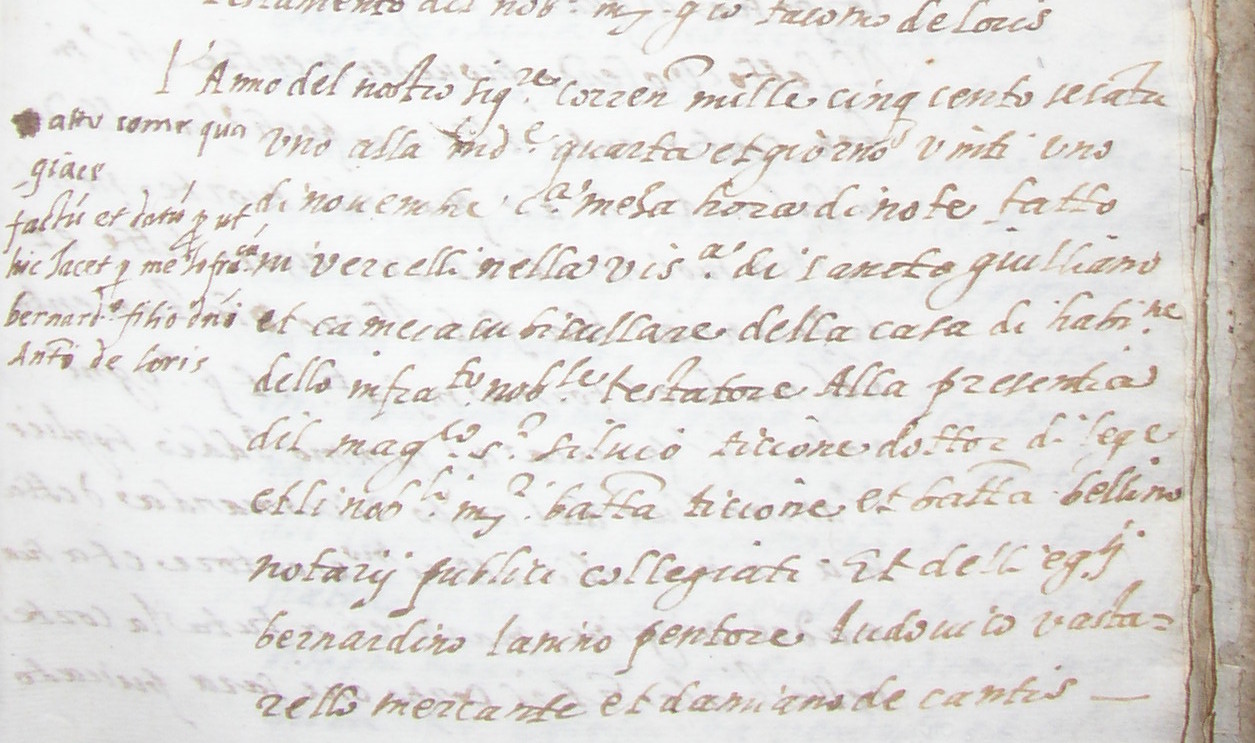 Testamento del nob.e m.r gio Jacomo de Loris
L'Anno del nostro Sig.re Corren mille cinq cento sesata
uno alla Ind.e quarta et giorno vinti uno
di novembe c.a mesa hora di note fatto
in vercelli nella vis.a di sancto giulliano
et camera cubicullare della casa di habi.ne
dello infra.to nob.le testatore Alla presentia
dil mag.co s.r Silvio ticione dottor di lege
et li nob.li m.r batta ticione et batta bellino
notarij publici collegiati Et delli eg.ij
bernardino lanino pentore ludovico vasta=
rello mercante et damiano de cantis —
atto come qua
giace
factu et datu p ut
hic Jacet p me
bernard.o filio dni
Anto de loris